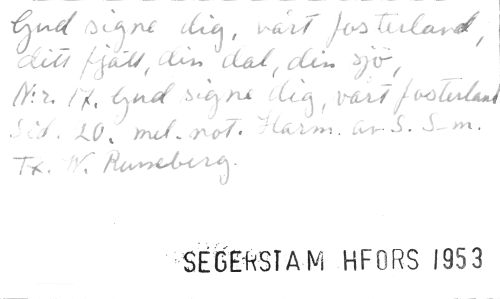 Gud signe dig, vårt fosterland,
ditt fjäll, din dal, din sjö,
N:r. 17. Gud signe dig, vårt fosterland
Sid. 20. mel. not. Harm. av S. S-m.
Tx. W. Runeberg.
SEGERSTAM HFORS 1953